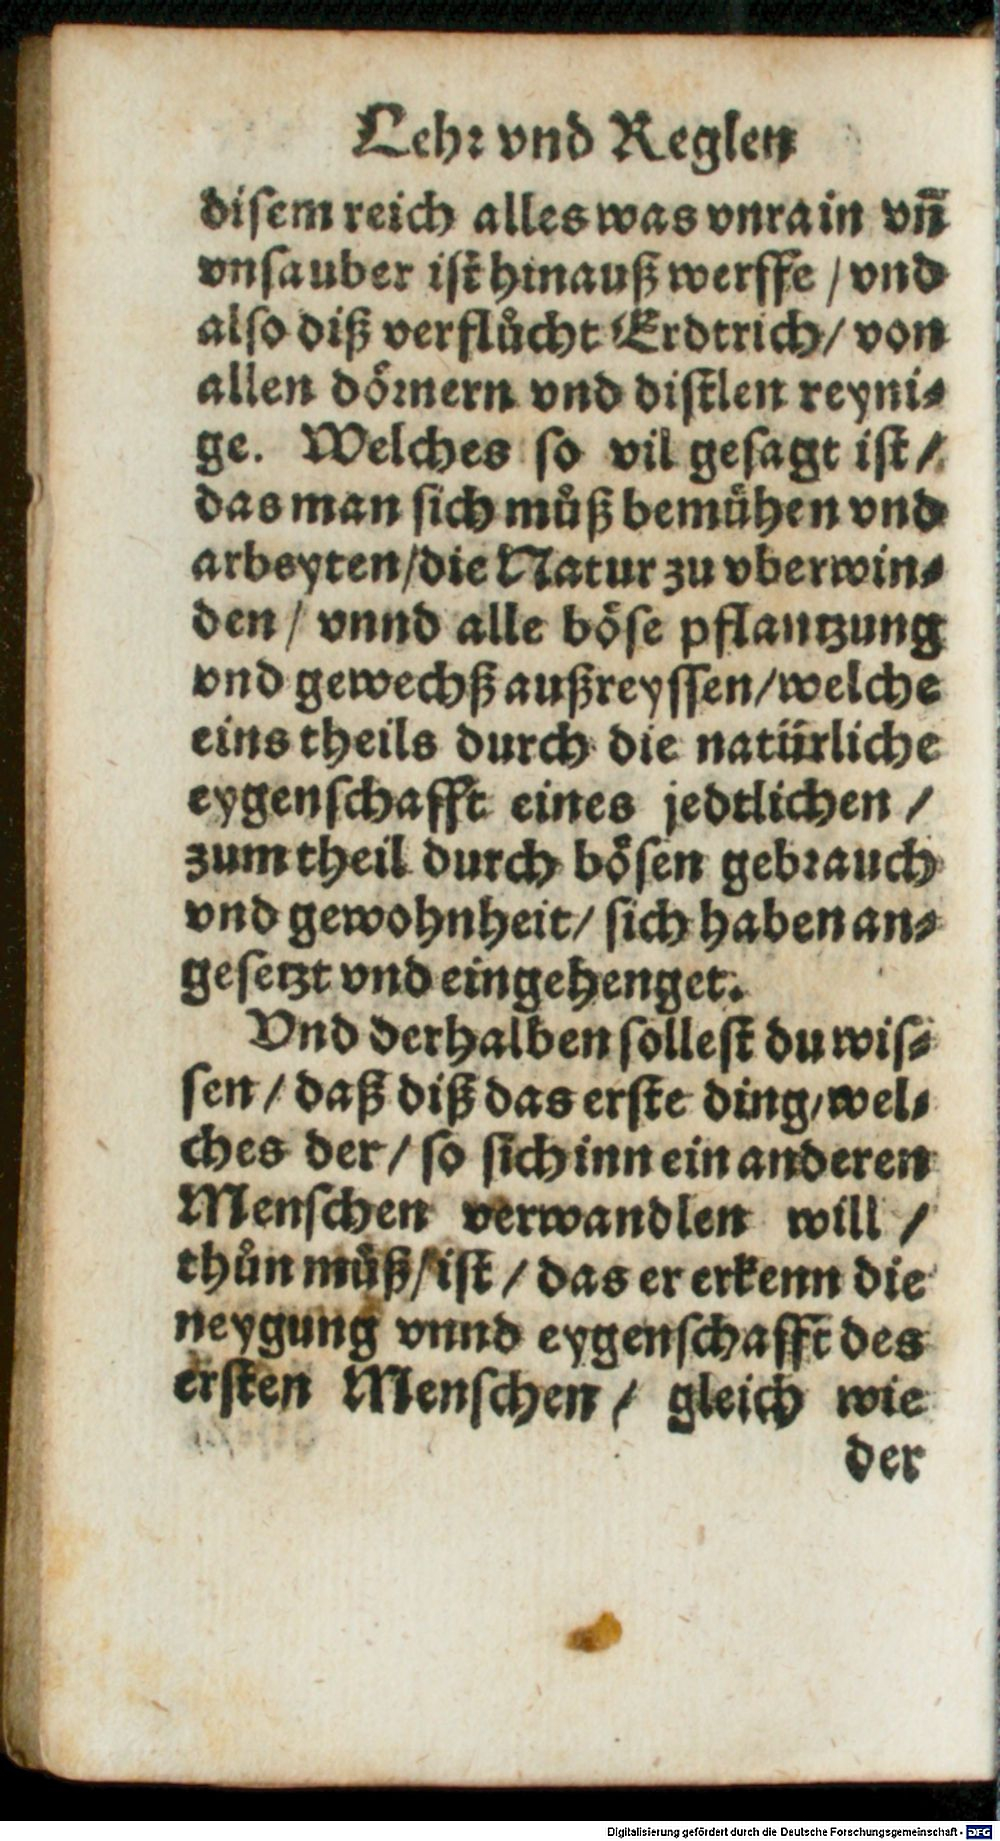 Lehr vnd Reglen
disem reich alles was vnrain vn̄
vnsauber ist hinauß werffe / vnd
also diß verflůcht Erdtrich / von
allen doͤrnern vnd distlen reyni⸗
ge. Welches so vil gesagt ist /
das man sich můß bemuͤhen vnd
arbeyten / die Natur zu vberwin⸗
den / vnnd alle boͤse pflantzung
vnd gewechß außreyssen / welche
eins theils durch die natürliche
eygenschafft eines jedtlichen /
zum theil durch boͤsen gebrauch
vnd gewohnheit / sich haben an⸗
gesetzt vnd eingehenget.
Vnd derhalben sollest du wis⸗
sen / daß diß das erste ding, wel⸗
ches der / so sich inn ein anderen
Menschen verwandlen will /
thůn můß / ist / das er erkenn die
neygung vnnd eygenschafft des
ersten Menschen / gleich wie
der
Digitalisierung gefördert durch die Deutsche Forschungsgemeinschaft - DFG